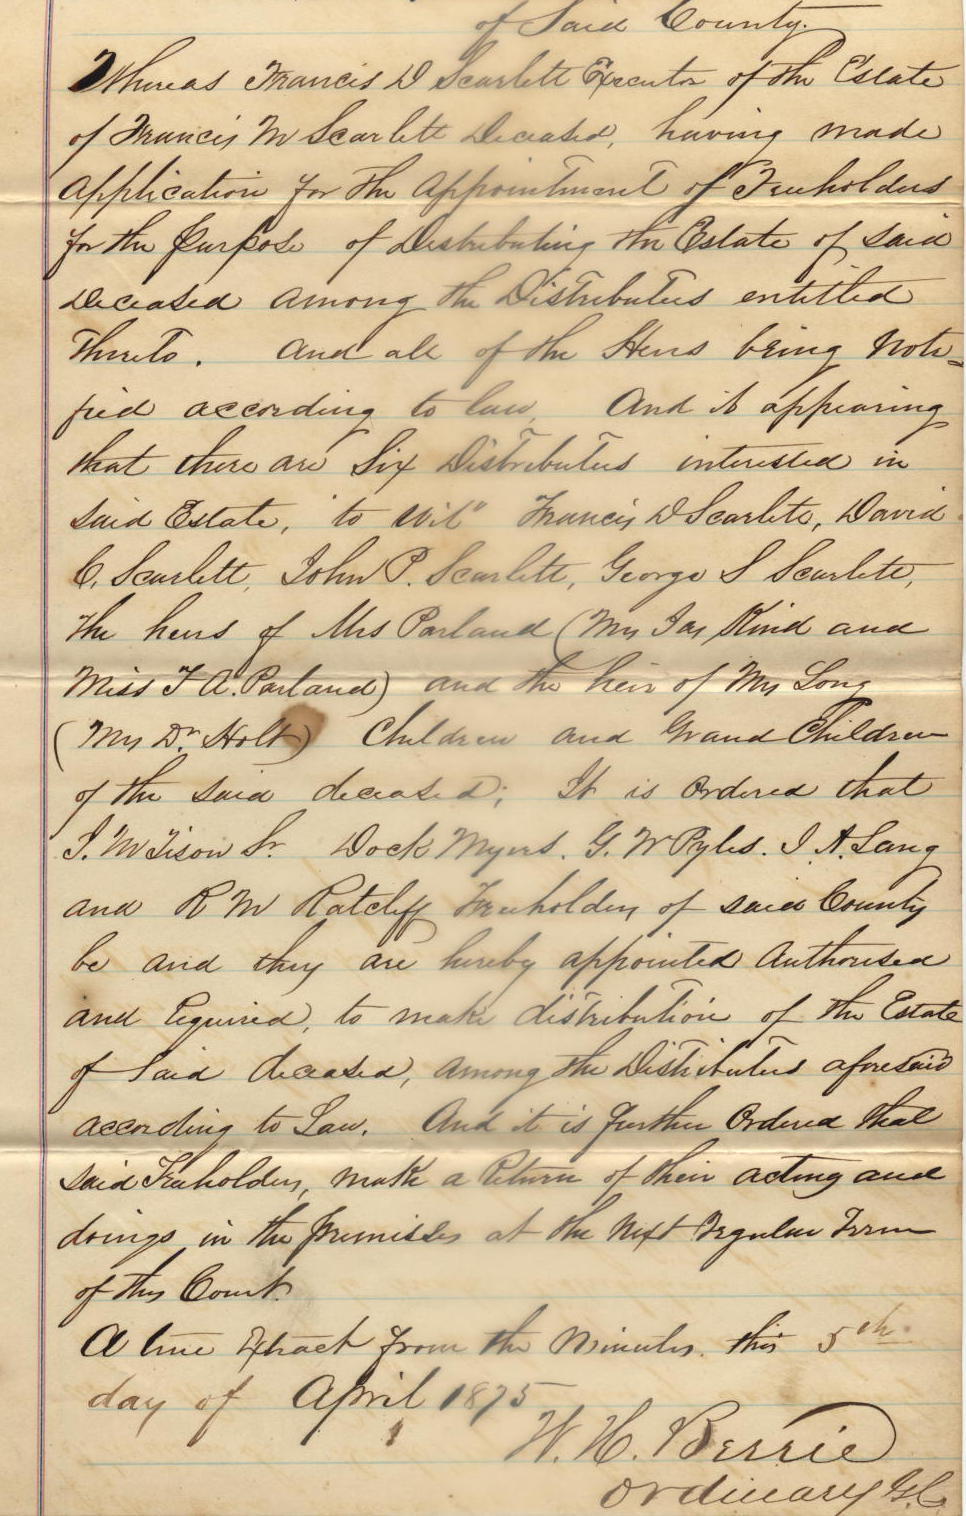 of Said County.
Whereas Francis D Scarlett Executor of the Estate
of Francis M Scarlett Deceased, having made
Application for the Appointment of Freeholders
for the purpose of Distributing the Estate of said
Deceased among the Distributees entitled
Thereto. And all of the Heirs being Noti=
fied according to law, And it appearing
that there are Six Distributees interested in
said Estate, "to wit" Francis D Scarlett, David
C. Scarlett, John P. Scarlett, George S Scarlett,
The heirs of Mrs Parland (Mrs Jas Kind and
Miss F A. Parland) and the heir of Mrs Long
(Mrs Dr. Holt) Children and Grand Children
of the said deceased; It is Ordered that
J. M Tison Sr. Dock Myers. G. W Pyles. J A. Lang
and R M Ratcliff Freeholders of said County
be and they are hereby appointed Authorised
and Required, to make distribution of the Estate
of Said deceased, among the Distributees aforesaid
according to Law. And it is further Ordered that
said Freeholders, make a Return of their acting and
doings in the premisses at the next Regular Term
of this Court.
A true Extract from the Minutes. this 5th
day of April 1875
W. H. Berrie
Ordinary G.C.